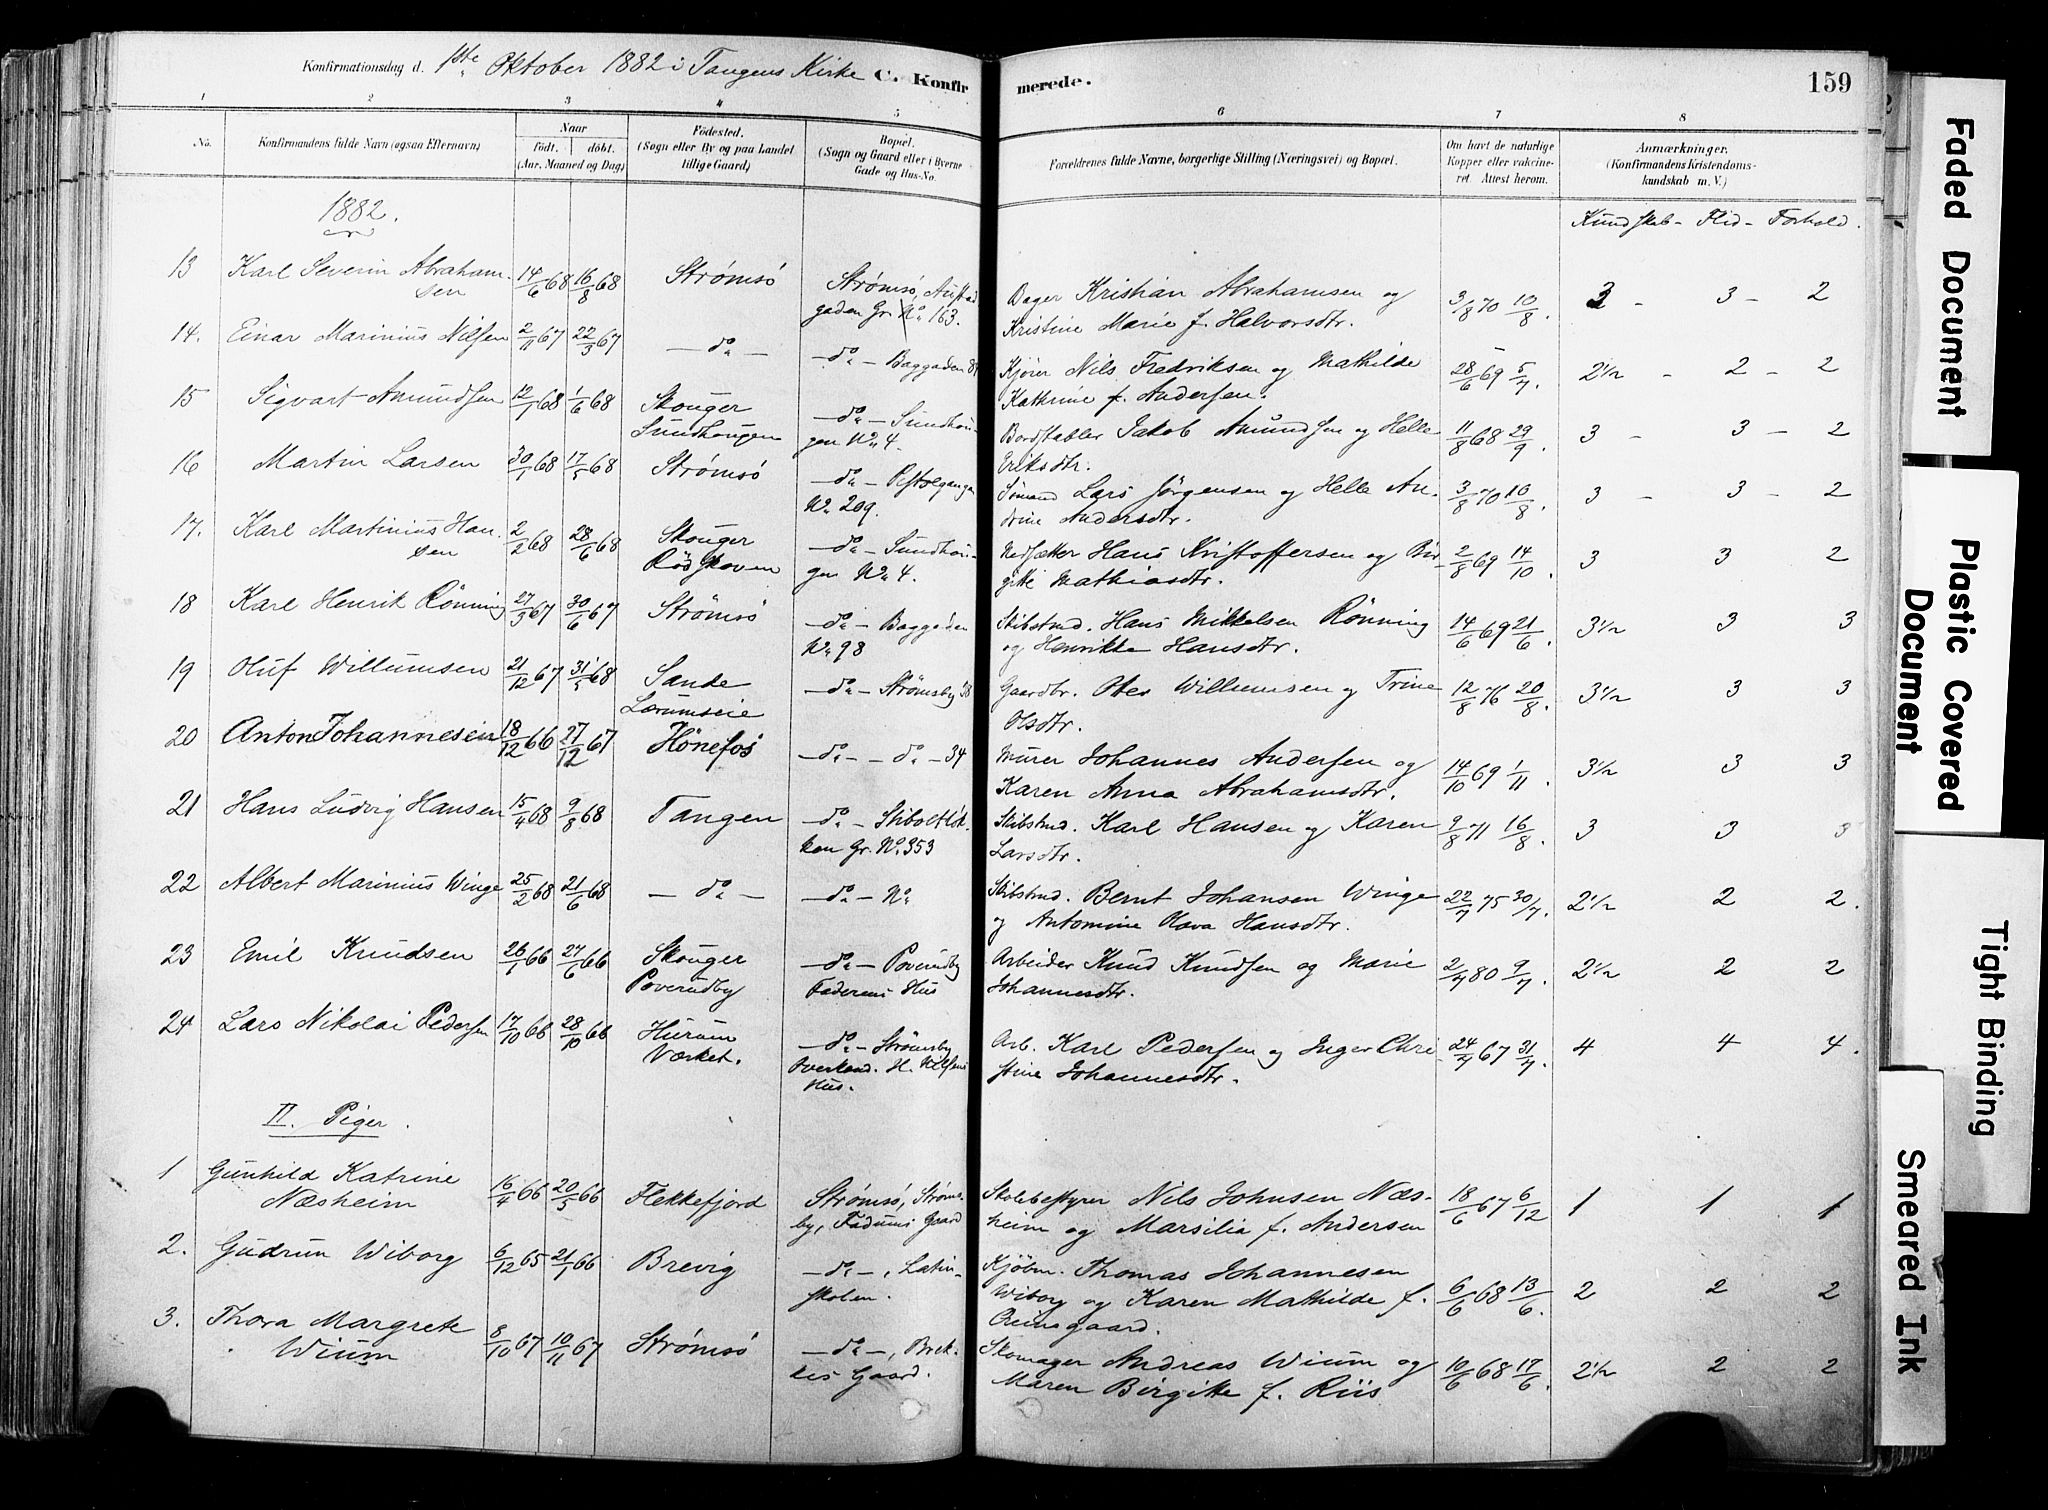 Konfirmationsdag d. 1ste Oktober 1882 i Tangens Kirke C. Konfir merede. 159
1 2 3 4 5 6 7 8
No. Konfirmandens fulde Navn (ogsaa Efternavn) Naar født. døbt. (Aar, Maaned og Dag) Fødested. (Sogn eller By og paa Landet tillige Gaard) Bopæl. (Sogn og Gaard eller i Byerne Gade og Hus-No. Forældrenes fulde Navne, borgerlige Stilling (Næringsvei) og Bopæl. Om havt de naturlige Kopper eller vaccineret. Attest herom. Anmærkninger. (Konfirmandens Kristendomskundskab m. V.)
1882. Kundskab - Flid - Forhold.
13 Karl Severin Abraham- 14/6 68 16/8 68 Strømsø Strømsø, Bager Kristian Abrahamsen og 3/8 70 10/8. 3 - 3 - 2
sen gaden Gr. No. 163. Kristine Marie f. Halvorsdtr.
14. Einar Marinius Nilsen 2/11 67 22/3 67 - do - - do - Baggaden Kjører Nils Fredriksen og Mathilde 28/6 69 5/7. 2½ - 2 - 2
Kathrine f. Andersen.
15 Sigvart Amundsen 12/1 68 1/6 68 Skouger - do - Sundhou- Bordstabler Jakob Amundsen og Helle 11/8 68 29/9. 3 - 3 - 2
Sundhougen gen No. 4. Eriksdtr.
16 Martin Larsen 30/1 68 17/5 68 Strømsø - do - Pistolgangen Sømand Lars Jørgensen og Helle An- 3/8 70 10/8. 3 - 3 - 2
No. 209. drine Andersdtr.
17. Karl Martinius Han- 2/2 68 28/6 68 Skouger - do - Sundhou- Nedsætter Hans Kristoffersen og Bir- 2/8 69 14/10. 3 3 2
sen Rødskoven gen No. 4. gitte Mathiasdtr.
18 Karl Henrik Rönning 27/3 67 30/6 67 Strömsö - do - Baggaden Skibstmd. Hans Mikkelsen Rönning 14/6 69 21/6. 3½ 3 3
No. 98 og Henrikke Hansdtr.
19 Oluf Willumsen 21/12 67 31/5 68 Sande - do - Strømsby 58 Gaardbr. Willumsen og Trine 12/8 76 20/8. 3½ 3 3
Lærumseie Olsdtr.
20 Anton Johannesen 18/12 66 27/12 67 Hönefos - do - - do - 34 Murer Johannes Andersen og 14/10 69 1/11. 3½ 3 3
Karen Anna Abrahamsdtr.
21 Hans Ludvig Hansen 15/4 68 9/8 68 Tangen - do - Stiboltløk- Skibstmd. Karl Hansen og Karen 9/8 71 16/8. 3 3 3
ken Gr. No. 353 Larsdtr.
22 Albert Marinius Winge 25/2 68 21/6 68 - do - - do - No. Skibstmd. Bernt Johansen Winge 22/7 75 30/7. 2½ 2 2.
og Antomine Hansdtr.
23 Emil Knudsen 26/1 66 24/6 66 Skouger - do - Poverudby Arbeider Knud Knudsen og Marie 2/7 80 9/7. 2½ 2 2
Poverudby Faderens Hus Johannesdtr.
24 Lars Nikolai Pedersen 17/10 66 28/10 66 Hurum - do - Strømsby Arb. Karl Pedersen og Inger Chri- 24/7 67 31/7. 4 4 4.
Værket. H. Nilsens stine Johannesdtr.
Hus.
II. Piger.
1 Gunhild Katrine 16/4 66 20/5 66 Flekkefjord Strømsø, Strøms- Skolebestyrer Nils Johnsen Næs- 18/6 67 6/12 1 1 1
Næsheim by, Fadums Gaard heim og Marsilia f. Andersen
2. Gudrun Wiborg 6/12 65 21/1 66 Brevig - do -, Latin- Kjøbm. Thomas Johannesen 6/6 68 13/6. 2 2 2
skolen. Wiborg og Karen Mathilde f.
3. Thora Margrete 8/10 67 10/11 67 Strømsø - do -, Brek- Skomager Andreas Wium og 10/6 68 17/6. 2½ 2 2
Wium kes Gaard. Maren Birgitte f. Riis
Faded Document
Plastic Covered
Document
Tight Binding
Smeared Ink